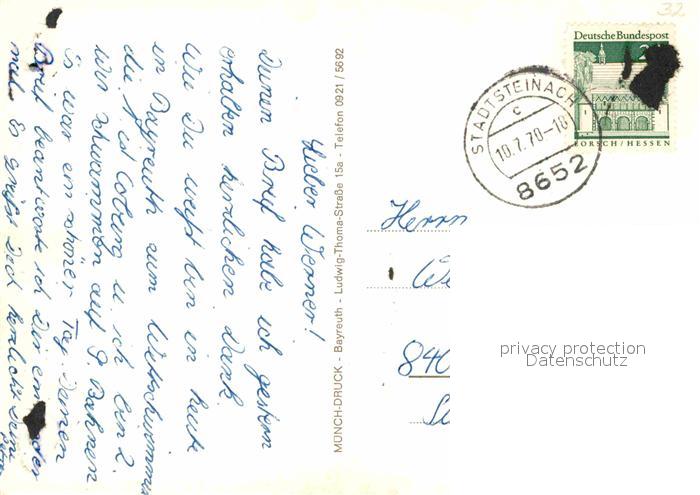 32
Deutsche Bundespost
LORSCH/HESSEN
STADTSTEINACH
c
10.7.70-18
8652
Lieber Werner!
Deinen Brief habe ich gestern
erhalten herzlichen Dank.
Wie Du weißt bin in heute
in Bayreuth zum Wettschwimmen
die ist Coburg u. ich bin 2.
wir schwammen auf 8 Bahnen
Es war ein schöner Tag. Deinen
Brief beantworte ich Dir ein
mal. Es grüßt Dich herzlichst
MÜNCH-DRUCK - Bayreuth - Ludwig-Thoma-Straße 15a - Telefon 0921 / 5692
Herrn
We
840
privacy protection
Datenschutz